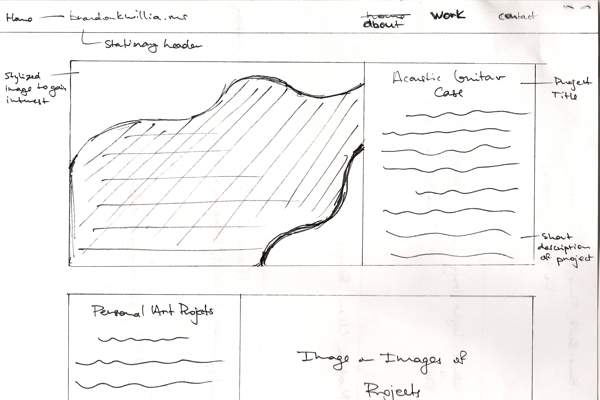 Home
brandonkwillia.ms
home
about
WORK
contact
Stationary header
Stylized
image to gain
interest
Acoustic Guitar
Case
Project
Title
Short
description
of project
Personal Art Projets
Image or Images of
Projects